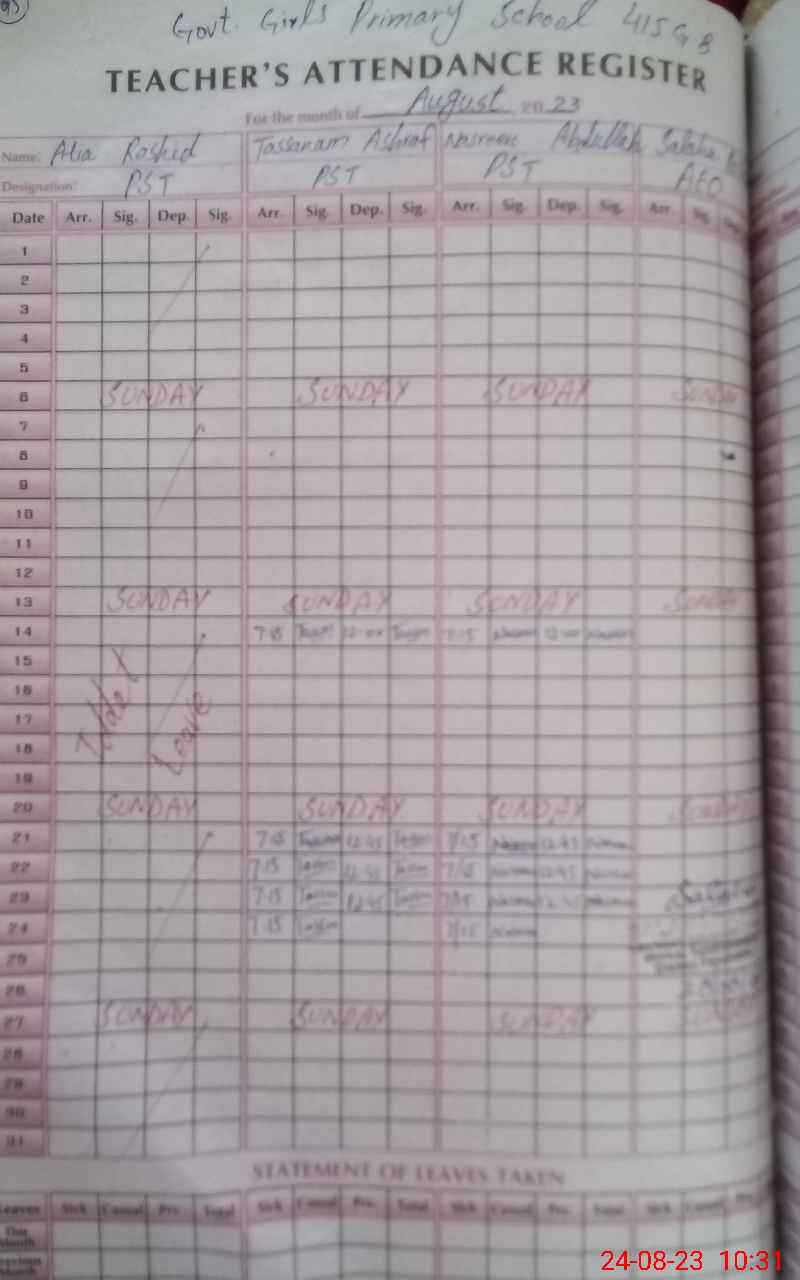 93
Govt. Girls Primary School 415 G.B
TEACHER'S ATTENDANCE REGISTER
For the month of August 2023
Name: Atia Rashid Tassanam Ashraf Nasreen Abdullah
Designation: PST PST PST
Date Arr. Sig. Dep. Sig. Arr. Sig. Dep. Sig. Arr. Sig. Dep. Sig. Arr. Sig.
1
2
3
4
5
6 SUNDAY SUNDAY SUNDAY SUNDAY
7
8
9
10
11
12
13 SUNDAY SUNDAY SUNDAY SUNDAY
14 7:15 12:00 7:15 12:00
15
16
17
18
19
Leave
20 SUNDAY SUNDAY SUNDAY SUNDAY
21 7:15 12:45 7:15 12:45
22 7:15 12:45 7:15 12:45
23 7:15 12:45 7:15 12:45
24 7:15 7:15
25
26
27 SUNDAY SUNDAY SUNDAY SUNDAY
28
29
30
31
STATEMENT OF LEAVES TAKEN
Leaves Sick Casual Prv. Total Sick Casual Prv. Total Sick Casual Prv. Total Sick Casual
This Month
Previous Month
24-08-23 10:31